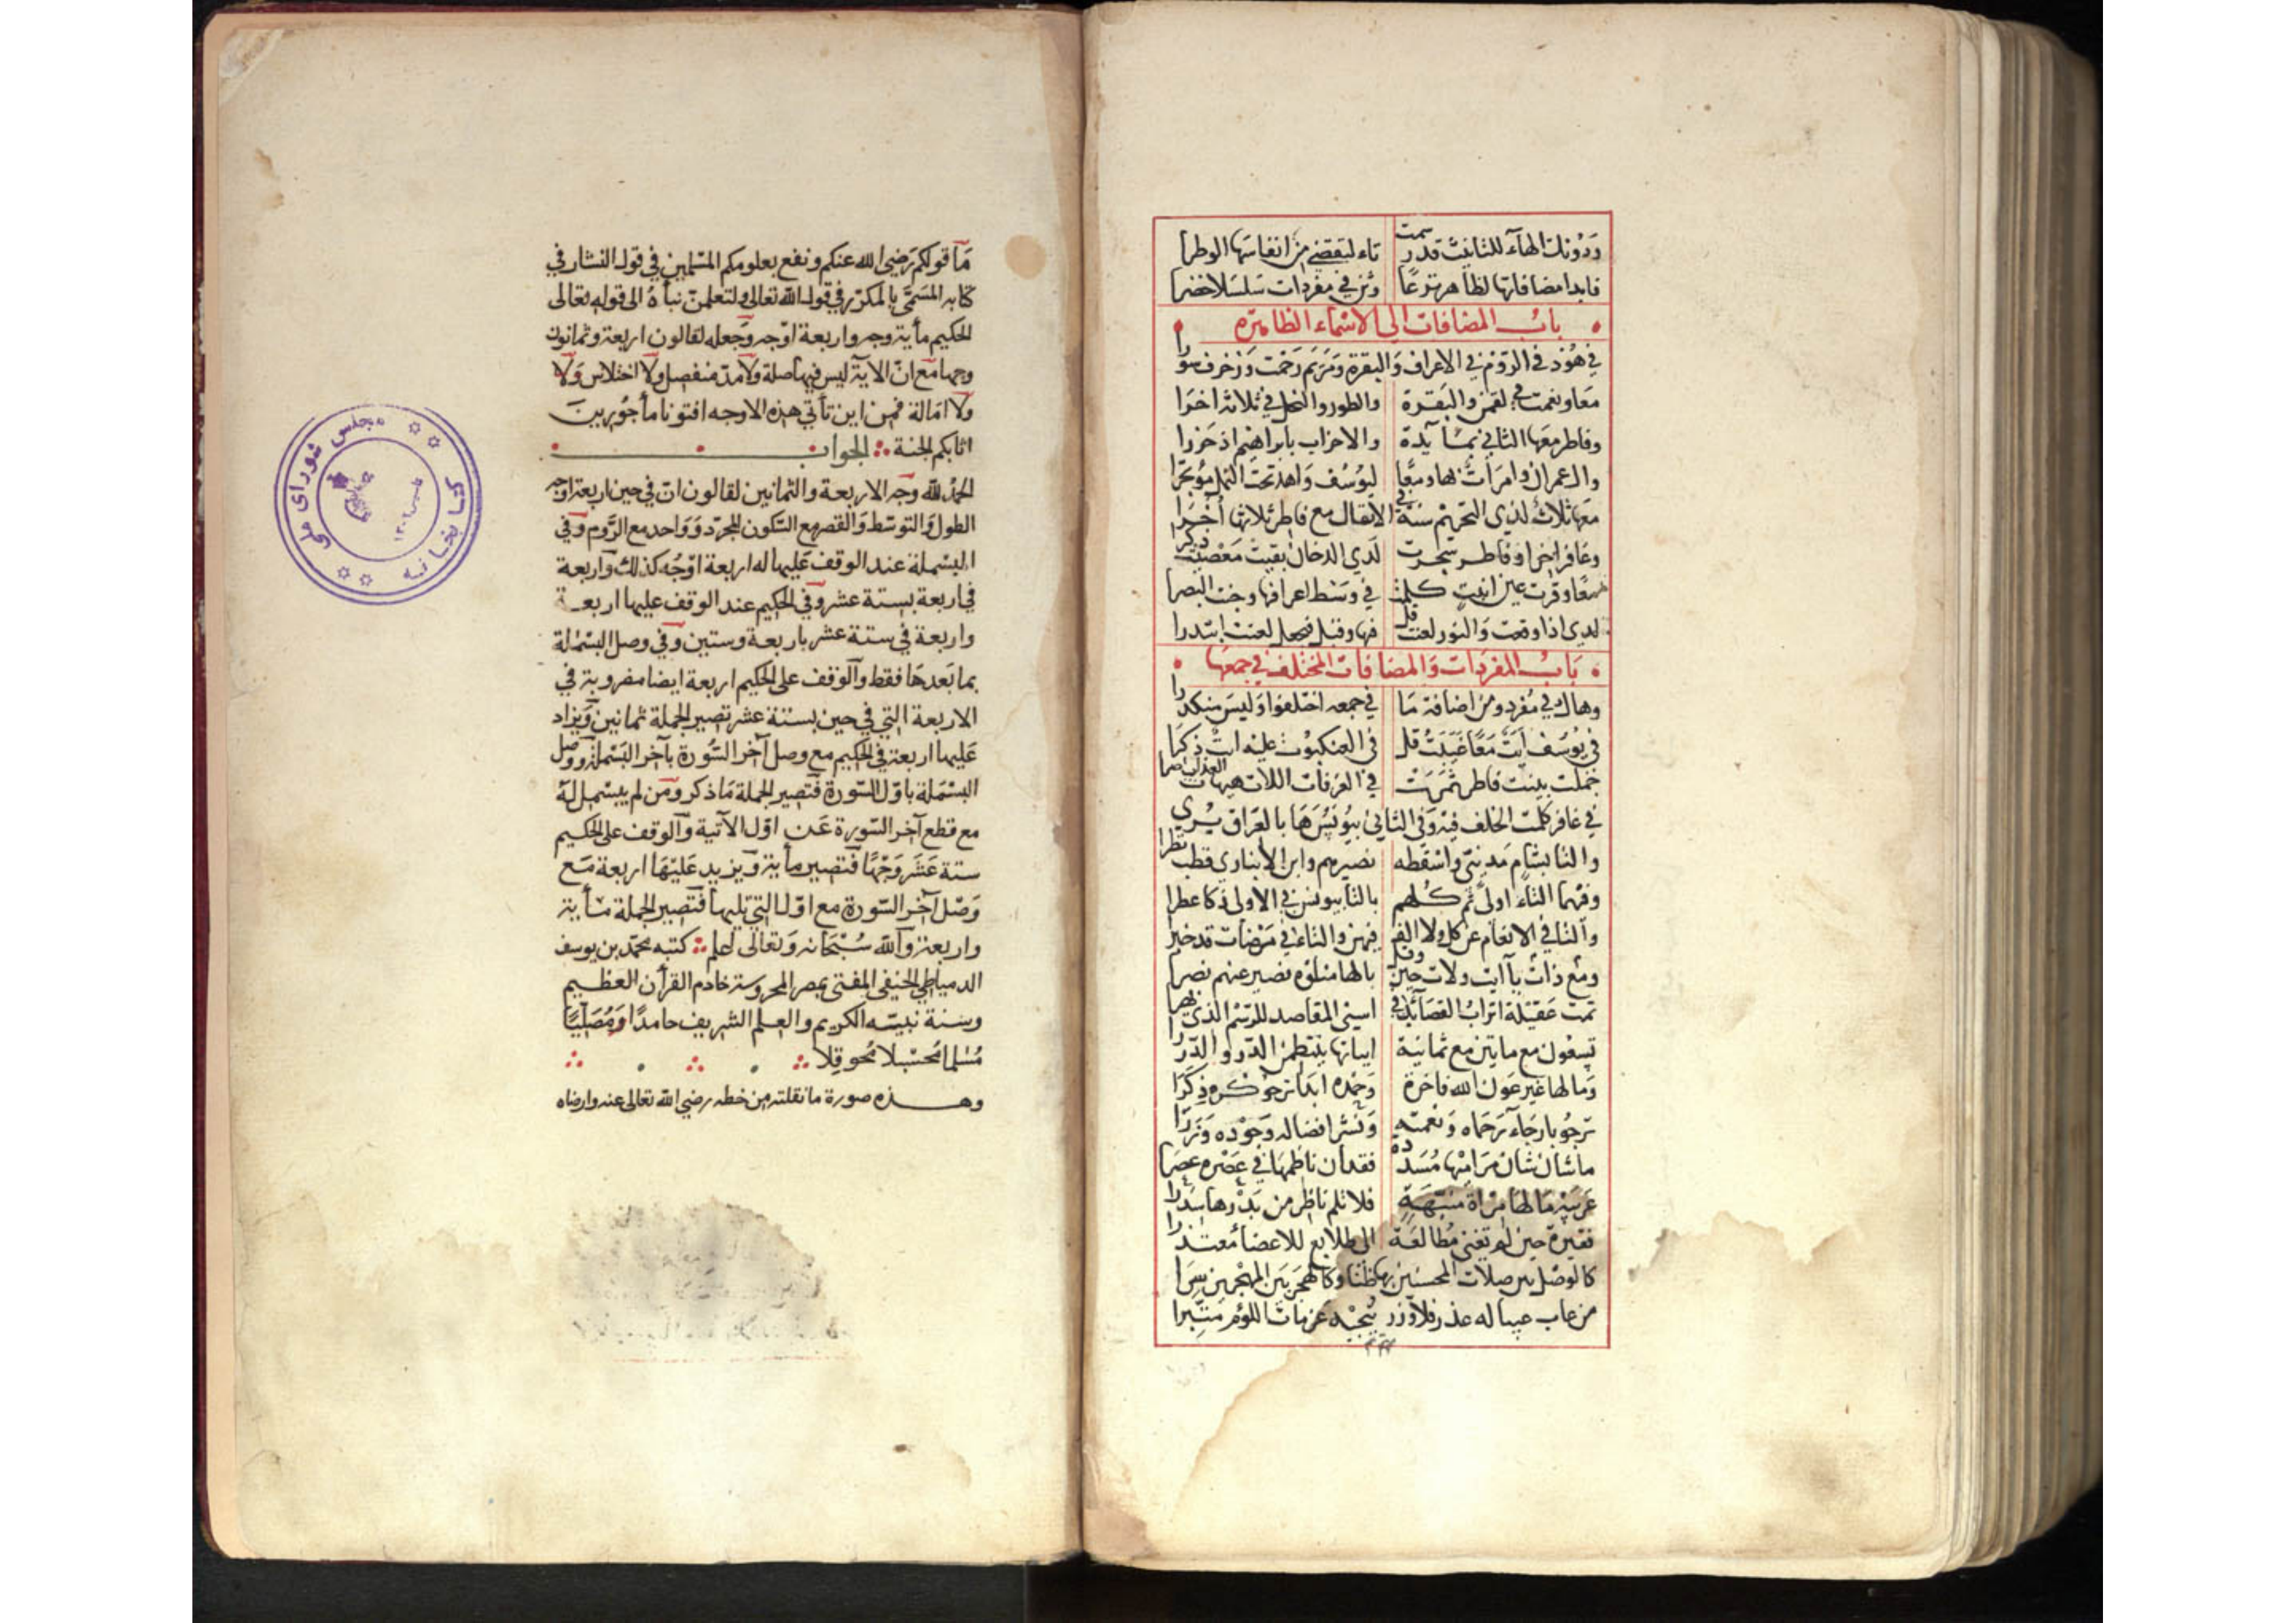 ودونك الهاء للتانيث قد رسمت تاء لتقضي من انفاسها الوطرا
فابدا مضافاتها لظاهر ترعا وثن في مفردات سلسلا خضرا
باب المضافات الى الاسماء الظاهرة
في هود في الروم في الاعراف والبقرة ومريم رحمت وزخرف سورا
معا ونعمت في لقمن والبقرة والطور والنحل في ثلاثة اخرا
وفاطر معها الثاني بمائدة والاحزاب بابراهيم اذ حزرا
وال عمران وامرات بها ومعا ليوسف واهد تحت النمل مؤتجرا
معها ثلاث لدي التحريم سنة في الانفال مع فاطر ثلاثها اخرا
وغافر اخرا وفاطر شجرت لدي الدخان بقيت معصيت ذكرا
معا وقرت عين ابنت كلمت في وسط اعرافها وجنت البصرا
لدي اذا وقعت والنور لعنت قل فيها وقبل فنجعل لعنت ابتدرا
باب المفردات والمضافات المختلف في جمعها
وهاك في مفرد ومن اضافة ما في جمعه اختلفوا وليس منكدرا
في يوسف ايت معا غيبت قل في العنكبوت عليه ايت ذكرا
جملت بينت فاطر ثمرت في الغرفات اللات هيهات العذاب صرا
في غافر كلمت الخلف فيه وفي الثاني بيونس ها بالعراق يرى
والتا بشام مدينى واسقطه نصيرهم وابن الانباري قطب نظرا
وفيهما التاء اولى ثم كلهم بالتا بيونس في الاولى ذكا عطرا
والتا في الانعام عن كل ولا الف فيهن والتاء في مرضات قد خبرا
ومع ذات يا ابت ولات حين وقل بالها مناوة نصير عنهم نصرا
تمت عقيلة اتراب القصائد في اسنى المقاصد للرسم الذي بهرا
تسعون مع مايتين مع ثمانية ابياتها ينتظمن الدر والدررا
وما لها غير عون الله فاخرة وحمده ابدا وشكره ذكرا
ترجو بارجاء رحماه ونعمته ونشر افضاله وجوده وزرا
ما شان شان مراميها مسددة فقدان ناظمها في عصره عصرا
غريبة ما لها مراة منبهة فلا يلم ناظر من بدرها سررا
فقيرة حين لم تغنى مطالعة الى طلايع للاغضا معتذرا
كالوصل بين صلات المحسنين بها ظنا وكالهجر بين المهجرين سرا
من عاب عيبا له عذر فلا وزر ينجيه عن مات اللؤم متئرا
ما قولكم رضي الله عنكم ونفع بعلومكم المسلمين في قول النشار في
كتابه المسمى بالمكرر في قول الله تعالى ولتعلمن نباه الى قوله تعالى
الحكيم مأية وجه واربعة اوجه وجعله لقالون اربعة وثمانون
وجها مع ان الاية ليس فيها صلة ولا مد منفصل ولا اختلاس ولا
ولا امالة فمن اين تأتي هذه الاوجه افتونا مأجورين
اثابكم الجنة الجواب
الحمد لله وجه الاربعة والثمانين لقالون ان في حين اربعة اوجه
الطول والتوسط والقصر مع السكون المجرد وواحد مع الروم وفي
البسملة عند الوقف عليها له اربعة اوجه كذلك واربعة
في اربعة بستة عشر وفي الحكيم عند الوقف عليها اربعة
واربعة في ستة عشر باربعة وستين وفي وصل البسملة
بما بعدها فقط والوقف على الحكيم اربعة ايضا مضروبة في
الاربعة التي في حين بستة عشر تصير الجملة ثمانين ويزاد
عليها اربعة في الحكيم مع وصل آخر السورة بآخر البسملة ووصل
البسملة باول السورة فتصير الجملة ما ذكر ومن لم يبسمل له
مع قطع آخر السورة عن اول الآتية والوقف على الحكيم
ستة عشر وجها فتصير مأية ويزيد عليها اربعة مع
وصل آخر السورة مع اول التي تليها فتصير الجملة مأية
واربعة والله سبحانه وتعالى اعلم كتبه محمد بن يوسف
الدمياطي الحنفي المفتي بمصر المحروسة خادم القرآن العظيم
وسنة نبيه الكريم والعلم الشريف حامدا ومصليا
مسلما محسبلا محوقلا
وهذه صورة ما نقلته من خطه رضي الله تعالى عنه وارضاه
كتابخانه مجلس شورای ملی